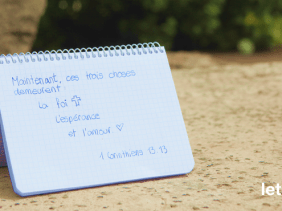 Maintenant, ces trois choses
demeurent :
La foi
L'espérance
et l'amour
1 Corinthiens 13:13
let